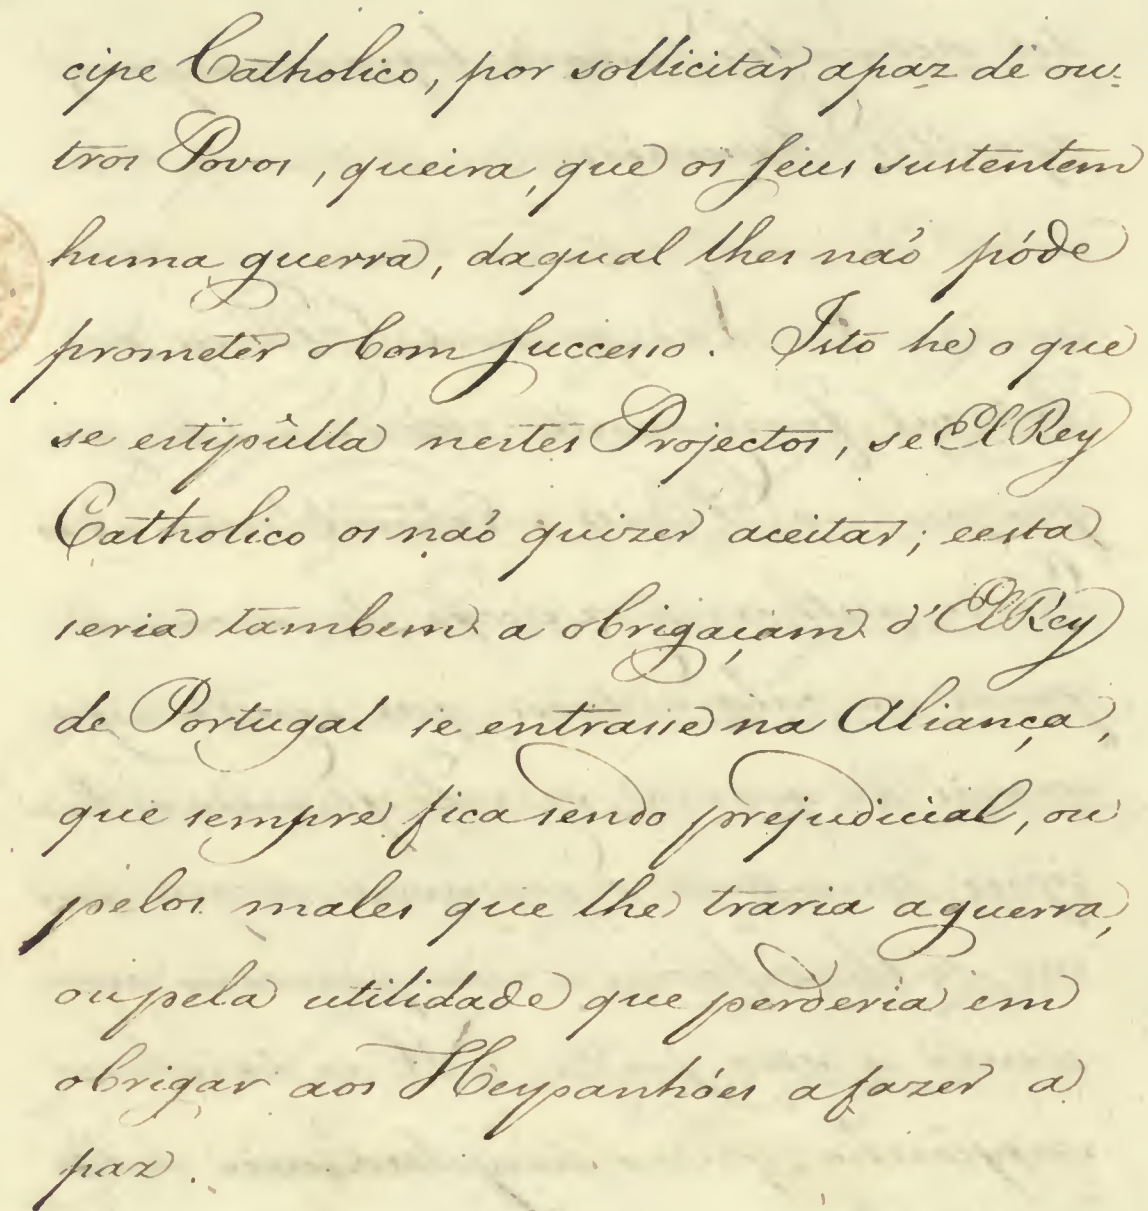 cipe Catholico, por sollicitar apaz de ou-
tros Povos, queira, que os seus sustentem
huma guerra, daqual lhes naó póde
prometer obom successo. Isto he o que
se estipulla nestes Projectos, se El Rey
Catholico os naó quizer aceitar; eesta
seria tambem a obrigaçam d'El Rey
de Portugal se entrasse na Aliança,
que sempre fica sendo prejudicial, ou
pelos males que lhe traria aguerra,
oupela utilidade que perderia em
obrigar aos Hespanhóes afazer a
paz.